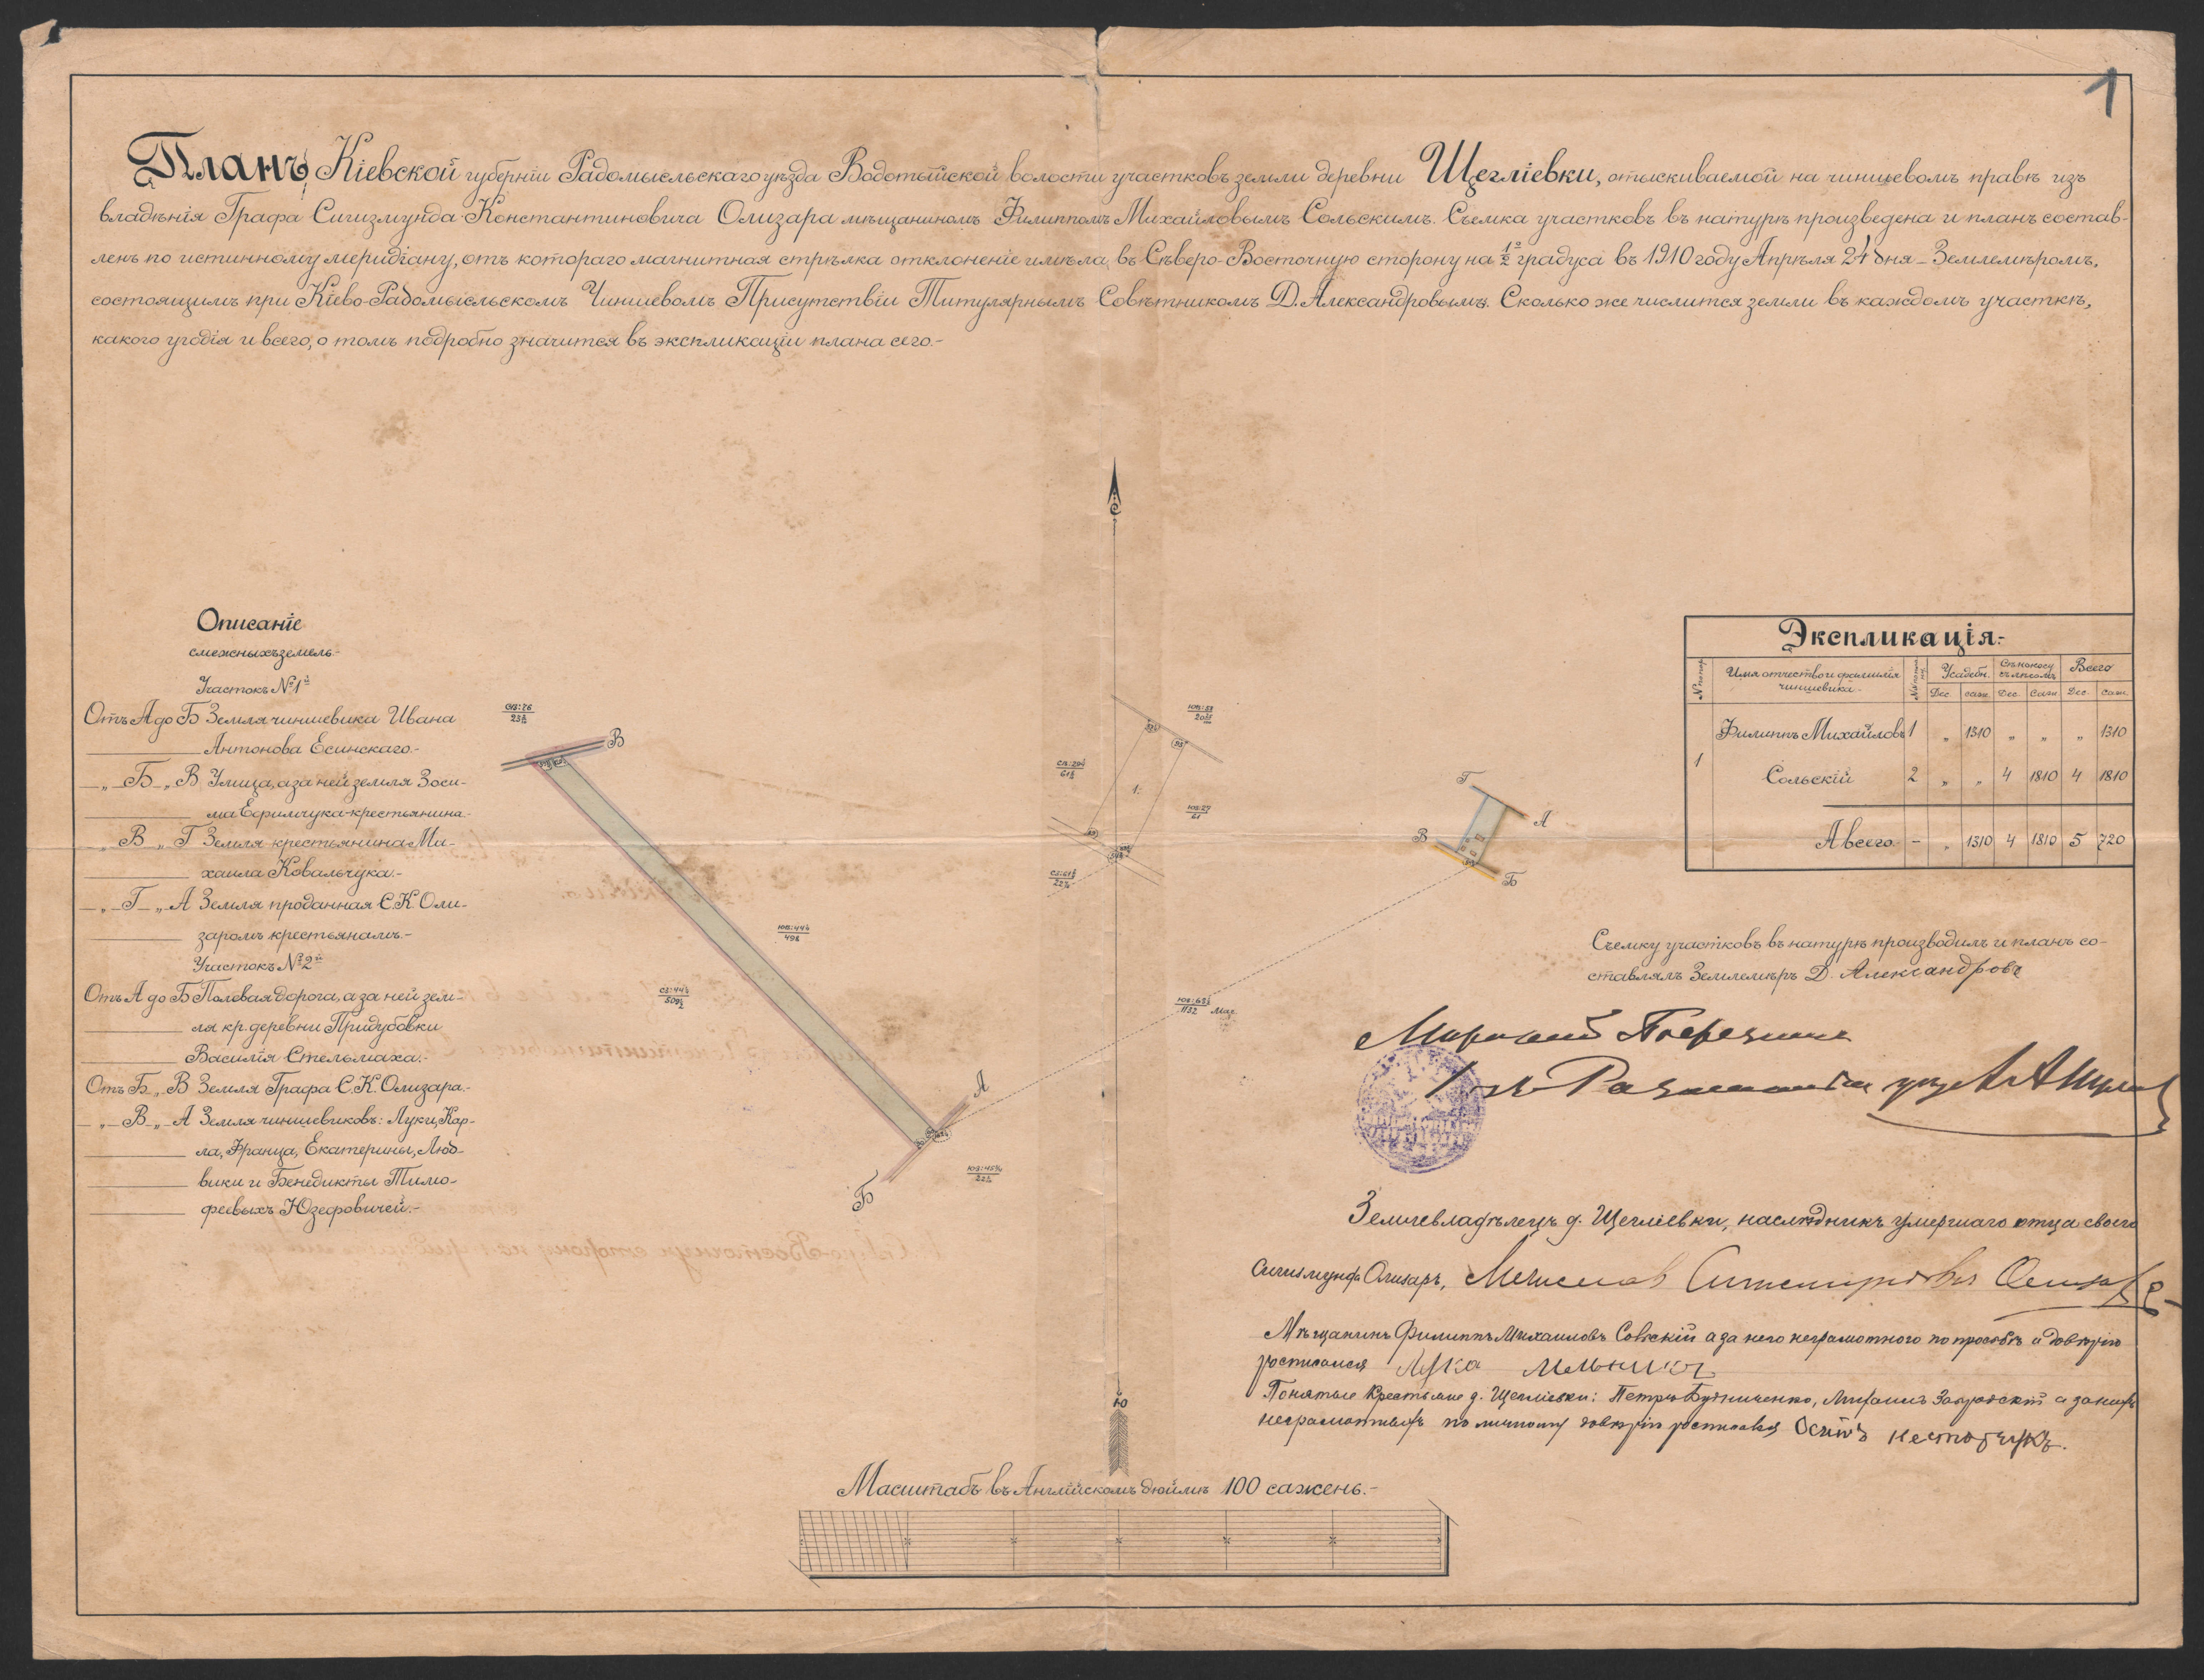 1
Планъ Кіевской губерніи Радомысльскаго уѣзда Водотыйской волости участковъ земли деревни Щегліевки, отыскиваемой на чиншевомъ правѣ изъ
владѣнія Графа Сигизмунда Константиновича Олизара мѣщаниномъ Филиппомъ Михайловымъ Сольскимъ. Съемка участковъ въ натурѣ произведена и планъ состав-
ленъ по истинному меридіану, отъ котораго магнитная стрѣлка отклоненіе имѣла въ Сѣверо-Восточную сторону на 1/2° градуса въ 1910 году Апрѣля 24 дня – Землемѣромъ,
состоящимъ при Кіево-Радомысльскомъ Чиншевомъ Присутствіи Титулярнымъ Совѣтникомъ Д. Александровымъ. Сколько же числится земли въ каждомъ участкѣ,
какого угодія и всего, о томъ подробно значится въ экспликаціи плана сего.-
С
Описаніе
смежныхъ земель.-
Участокъ №1й
Отъ А до Б Земля чиншевика Ивана
Антонова Есинскаго.-
„ Б „ В Улица, а за ней земля Зоси-
ма Ефимчука-крестьянина.-
„ В „ Г Земля крестьянина Ми-
хаила Ковальчука.-
„ Г „ А Земля проданная С.К. Оли-
заромъ крестьянамъ.-
Участокъ №2й
Отъ А до Б Полевая дорога, а за ней зем-
ля кр. деревни Придубовки
Василія Стельмаха.-
Отъ Б „ В Земля Графа С.К. Олизара.-
„ В „ А Земля чиншевиковъ: Луки, Кар-
ла, Франца, Екатерины, Люд-
вики и Бенедикты Тимо-
феевыхъ Юзефовичей.-
В
А
Б
1.
Г
А
В
Б
Экспликація.-
Имя отчество и фамилія чиншевика.- Усадебн. Сѣнокосу съ лѣсомъ Всего
Дес. саж. Дес. Саж. Дес. Саж.
1 Филиппъ Михайловъ 1 „ 1310 „ „ „ 1310
Сольскій 2 „ „ 4 1810 4 1810
А всего. – „ 1310 4 1810 5 720
Съемку участковъ въ натурѣ производилъ и планъ со-
ставлялъ Землемѣръ Д. Александровъ
Мировой Посредникъ
Землевладѣлецъ д. Щегліевки, наслѣдникъ умершаго отца своего
Сигизмунда Олизаръ,
Мѣщанинъ Филиппъ Михаиловъ Сольскій а за него неграмотного по просьбѣ и довѣрію
росписался Лука Мельникъ
Понятые Крестьяне д. Щегліевки: Петръ Будниченко, Михаилъ а за нихъ
неграмотныхъ по личному довѣрію росписался Осипъ Нестерчукъ.
Ю
Масштабъ въ Англійскомъ дюймѣ 100 сажень.-